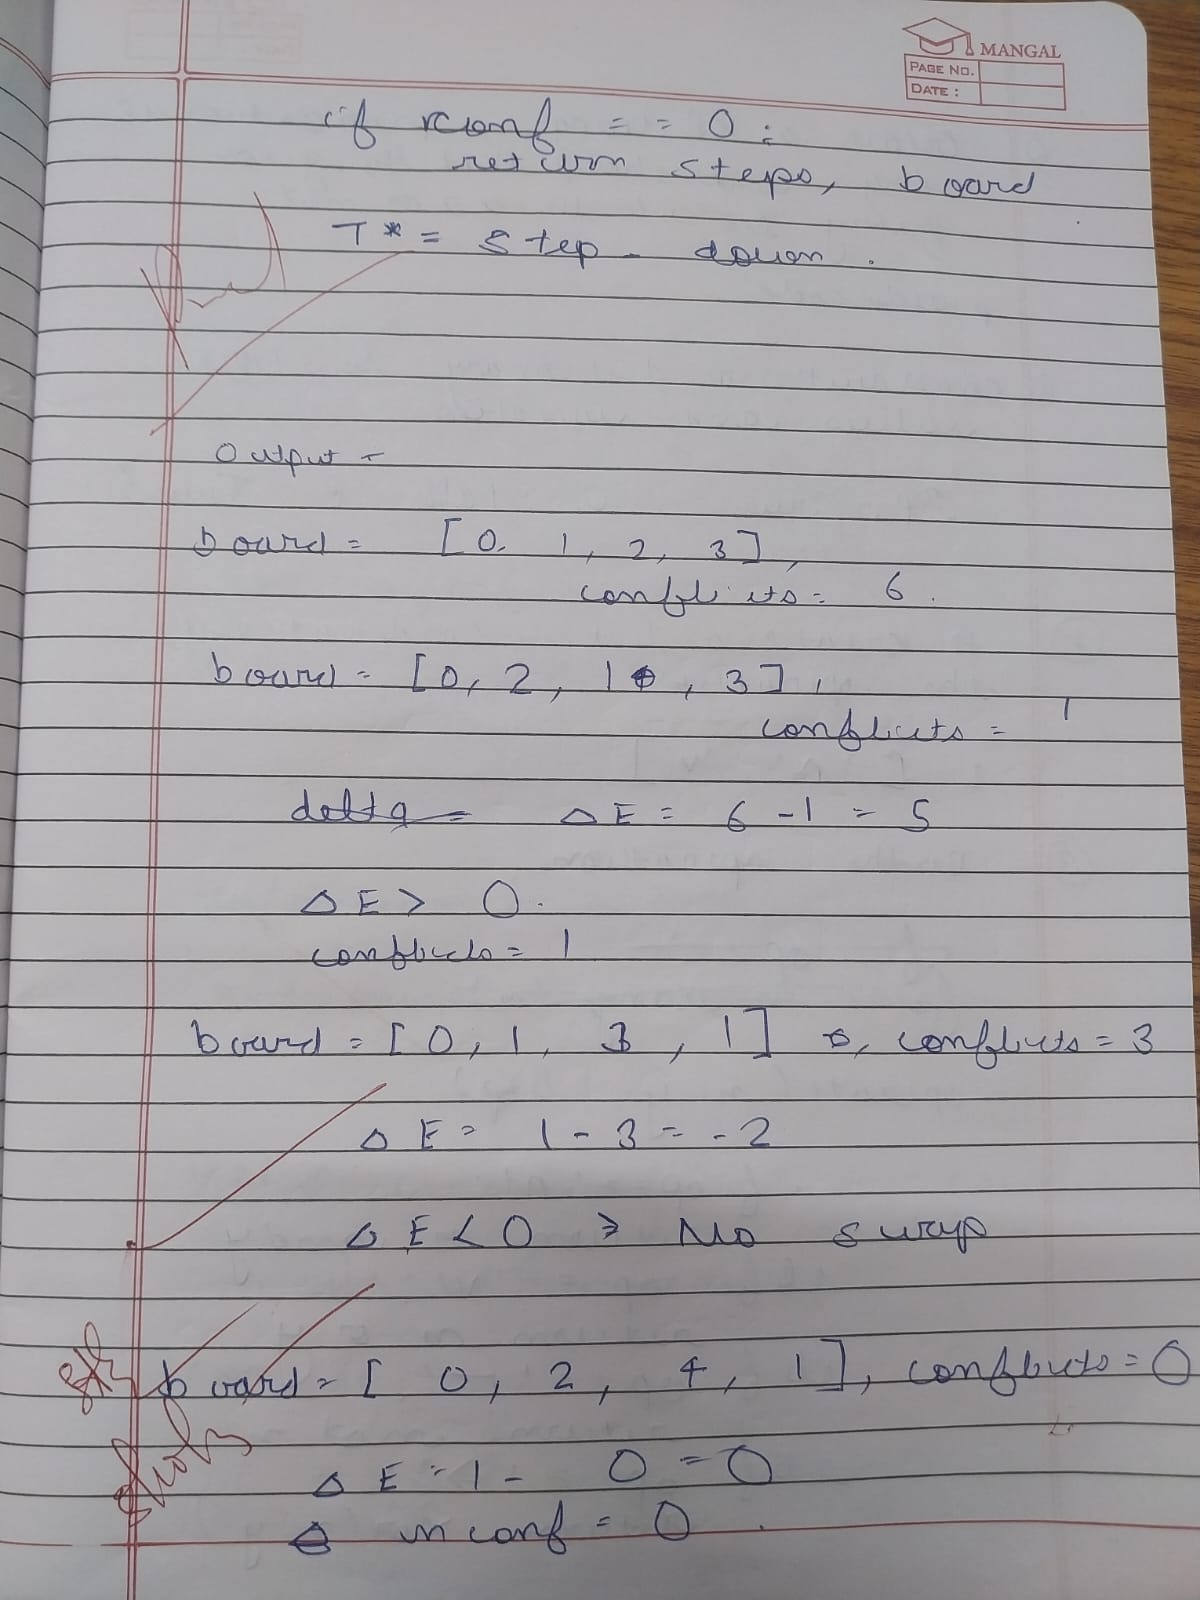 MANGAL
PAGE NO.
DATE :
if nconf = = 0 :
return steps, board
T * = step - down .
Output =
board = [0, 1, 2, 3],
conflicts = 6 .
board = [0, 2, 1, 3],
conflicts = 1
delta = ΔE = 6 - 1 = 5
ΔE > 0 .
conflicts = 1
board = [0, 1, 3, 1], conflicts = 3
ΔE = 1 - 3 = - 2
ΔE < 0 ⇒ No swap
board = [ 0, 2, 4, 1], conflicts = 0
ΔE = 1 - 0 = 0
in conf = 0 .